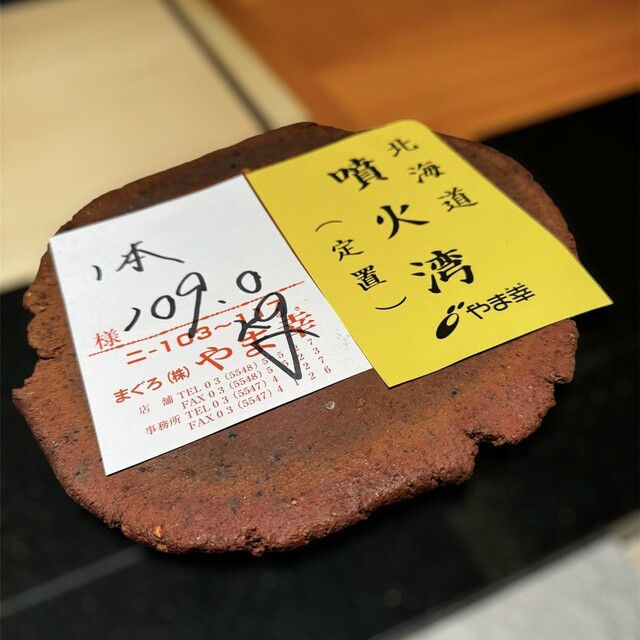 1本
109.0
様
まぐろ(株)やま幸
店舗 TEL 03(5548)
FAX 03(5548)
事務所 TEL 03(5547)
FAX 03(5547)
北海道
噴火湾
(定置)
やま幸